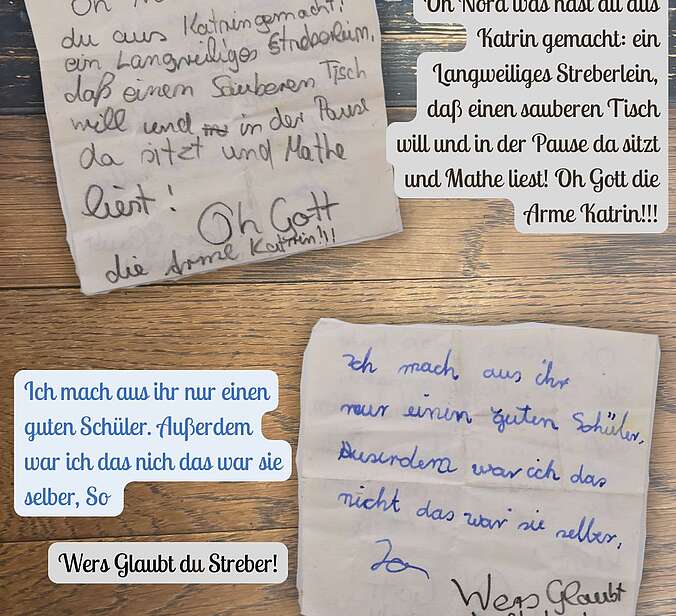 du aus Katrin gemacht!
ein Langweiliges Streberlein,
daß einen Sauberen Tisch
will und in der Pause
da sitzt und Mathe
liest!
Oh Gott
die Arme Katrin!!!
Oh Nord was hast du aus
Katrin gemacht: ein
Langweiliges Streberlein,
daß einen sauberen Tisch
will und in der Pause da sitzt
und Mathe liest! Oh Gott die
Arme Katrin!!!
Ich mach aus ihr nur einen
guten Schüler. Außerdem
war ich das nich das war sie
selber, So
Wers Glaubt du Streber!
Ich mach aus ihr
nur einen guten Schüler.
Auserdem war ich das
nicht das war sie selber,
So
Wers Glaubt